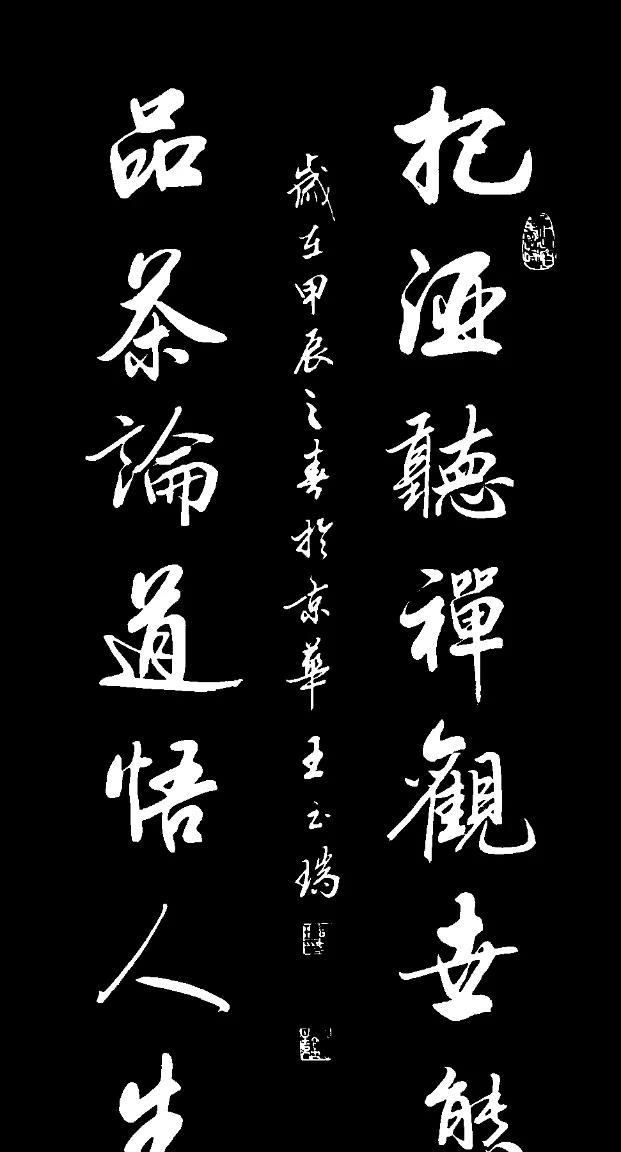 把酒聽禪觀世態
歲在甲辰之春於京華王玉瑞
品茶論道悟人生